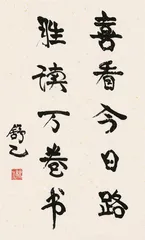 喜看今日路
胜读万卷书
舒乙